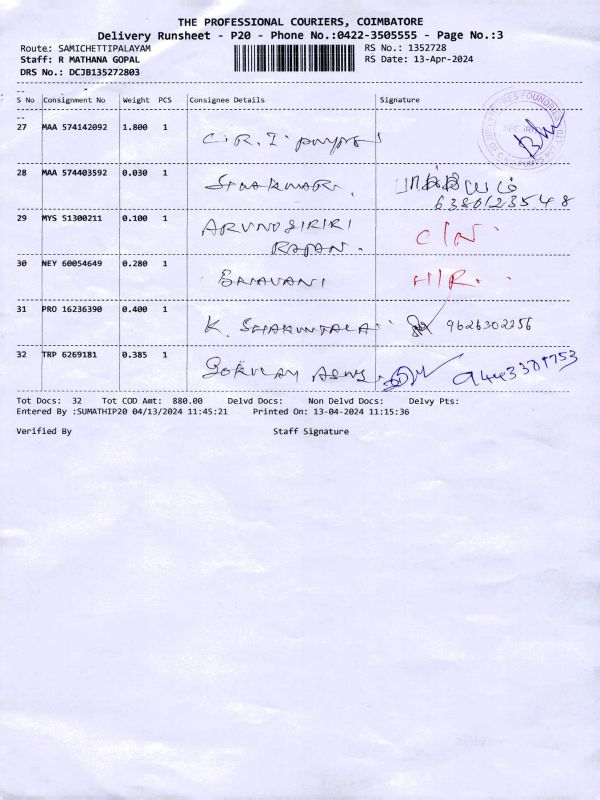 THE PROFESSIONAL COURIERS, COIMBATORE
Delivery Runsheet - P20 - Phone No.:0422-3505555 - Page No.:3
Route: SAMICHETTIPALAYAM RS No.: 1352728
Staff: R MATHANA GOPAL RS Date: 13-Apr-2024
DRS No.: DCJB135272803
S No Consignment No Weight PCS Consignee Details Signature
27 MAA 574142092 1.800 1 C.R.I.
28 MAA 574403592 0.030 1
6380123548
29 MYS 51300211 0.100 1 ARUNOGIRIRI C/N.
RAJAN.
30 NEY 60054649 0.280 1 BAVANI H/R.
31 PRO 16236390 0.400 1 K. SHAKUNTALA 9626302256
32 TRP 6269181 0.385 1 GOKULAY 9443301753
Tot Docs: 32 Tot COD Amt: 880.00 Delvd Docs: Non Delvd Docs: Delvy Pts:
Entered By :SUMATHIP20 04/13/2024 11:45:21 Printed On: 13-04-2024 11:15:36
Verified By Staff Signature